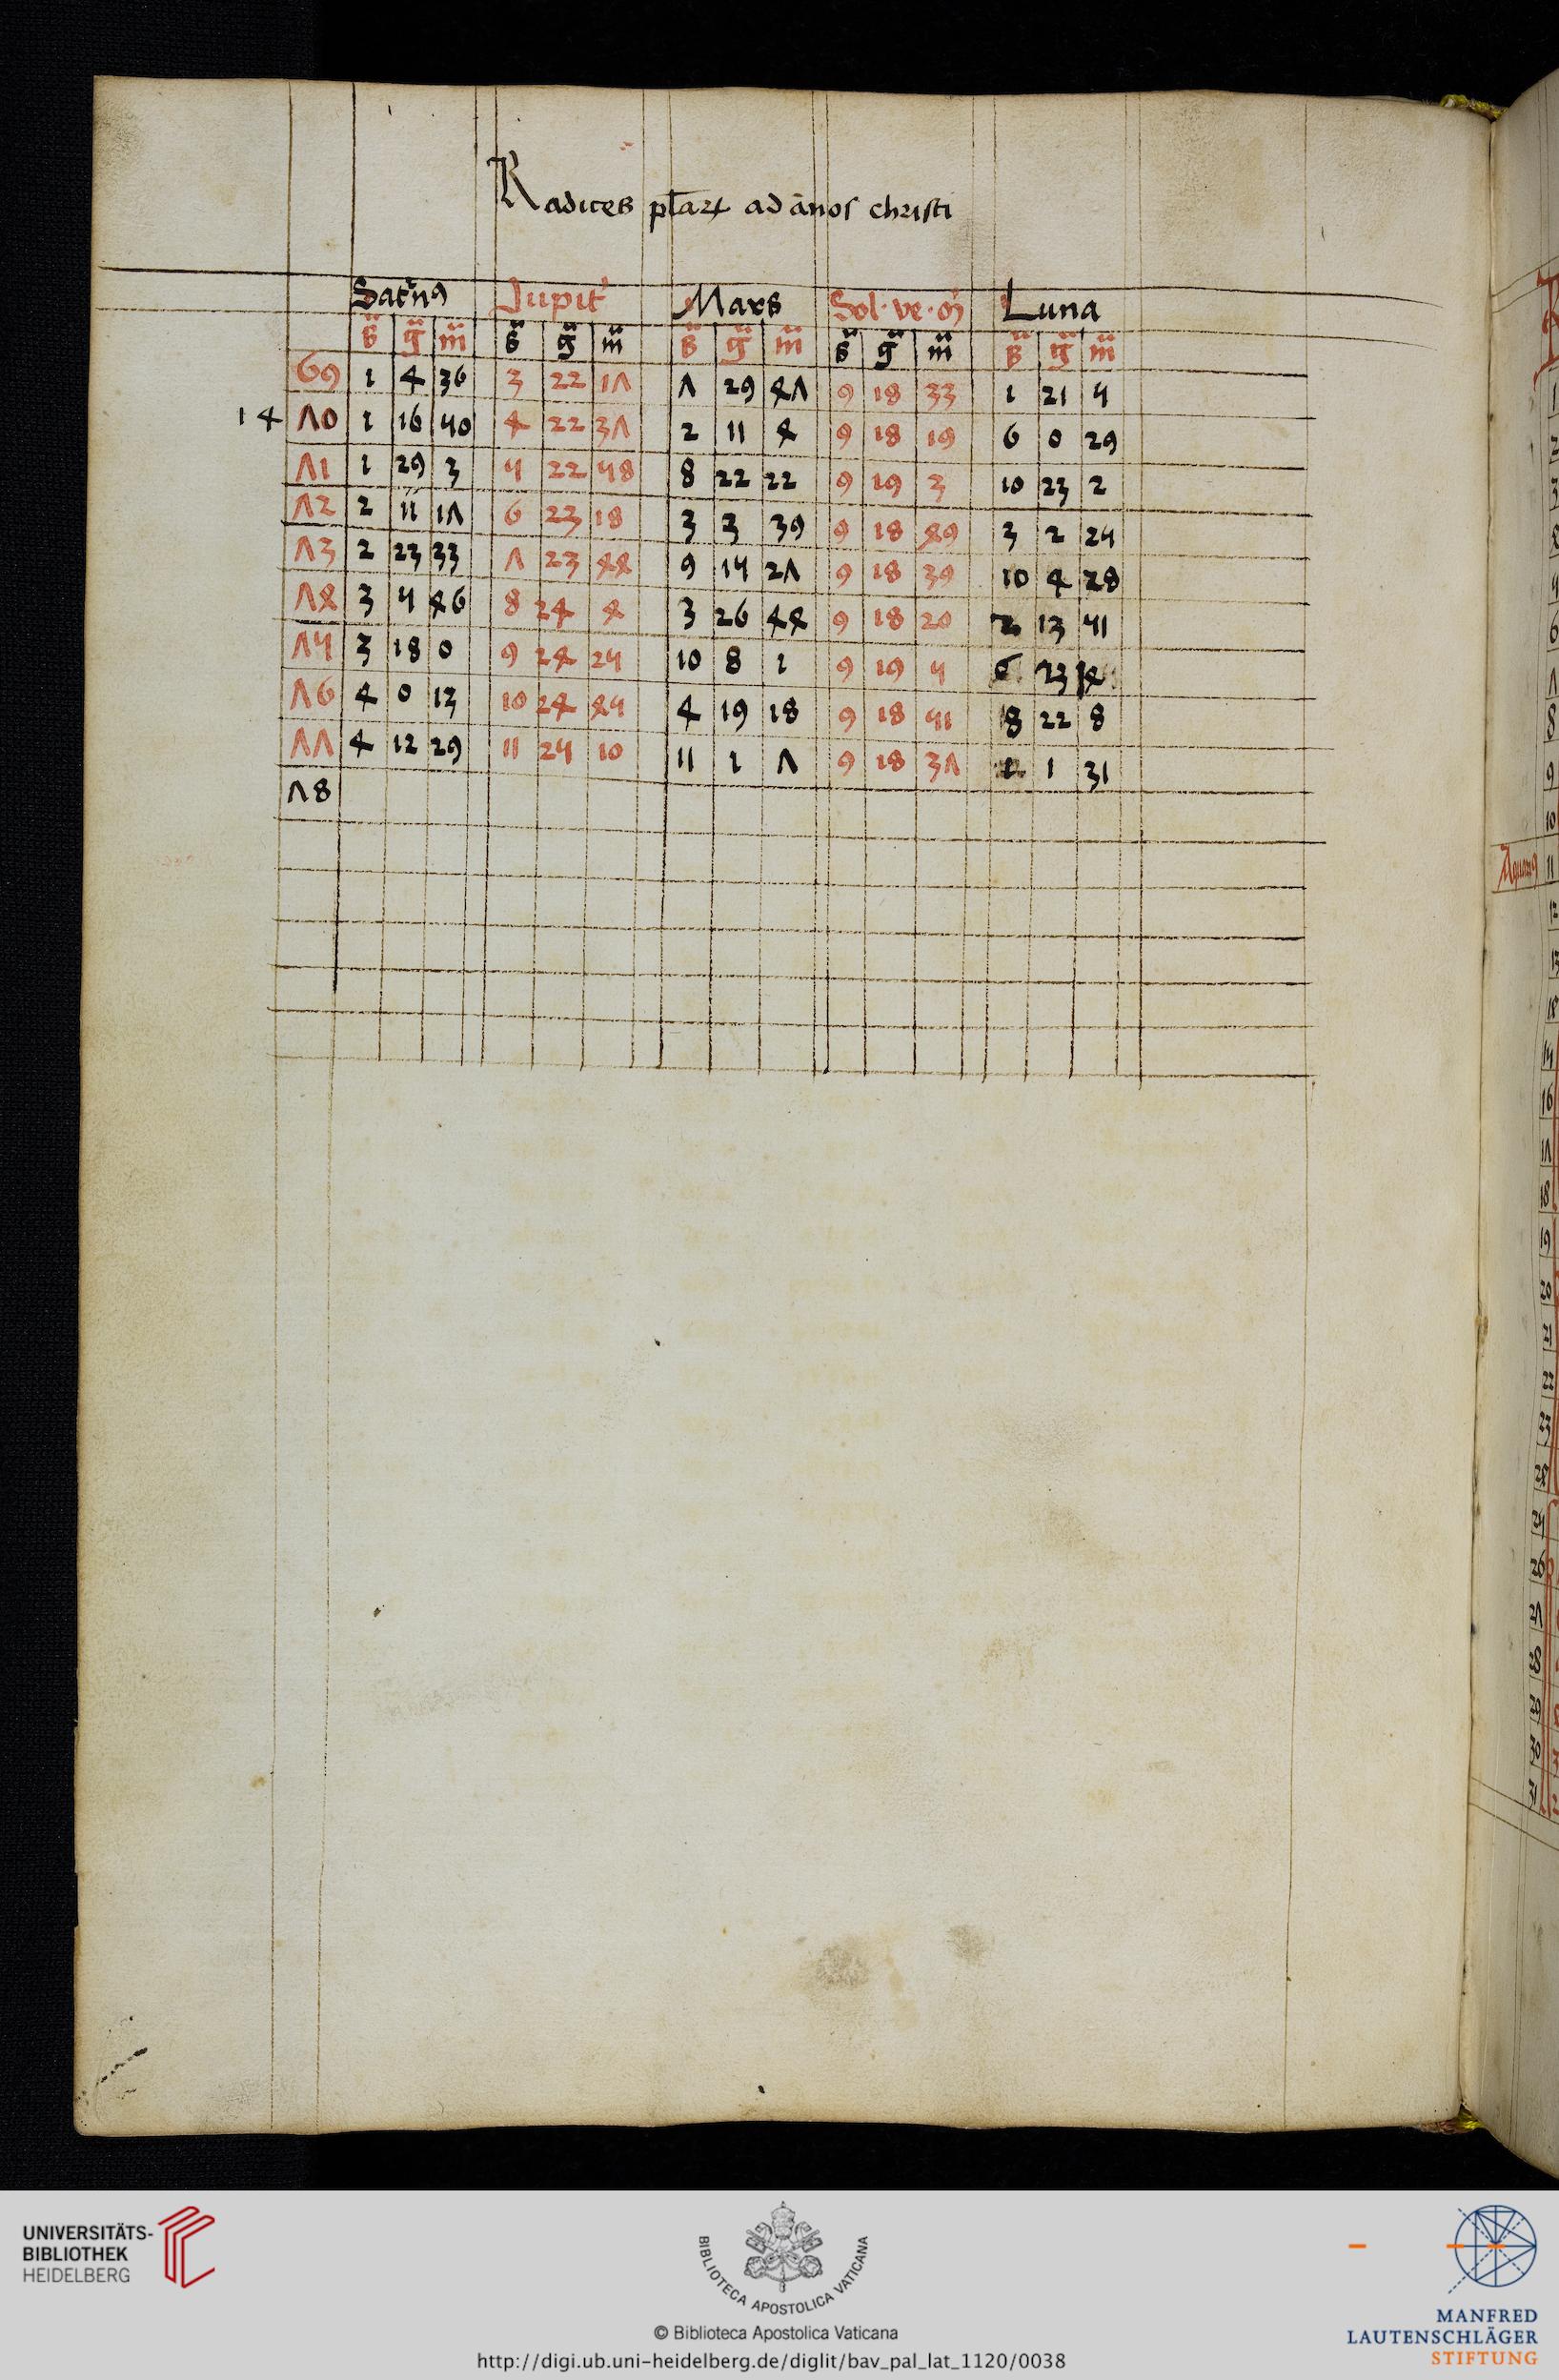 Radices pl̄aꝝ ad ānos christi
Sat'nꝯ Jupit' Mars Sol · ve · m̄ Luna
s̈ g̈ m̈ s̈ g̈ m̈ s̈ g̈ m̈ s̈ g̈ m̈ s̈ g̈ m̈
69 1 4 36 3 22 17 7 29 47 9 18 33 1 21 5
14 70 1 16 50 4 22 37 2 11 4 9 18 19 6 0 29
71 1 29 3 5 22 58 8 22 22 9 19 3 10 23 2
72 2 11 17 6 23 18 3 3 39 9 18 49 3 2 25
73 2 23 33 7 23 44 9 15 27 9 18 39 10 4 28
74 3 5 46 8 24 4 3 26 44 9 18 20 2 13 51
75 3 18 0 9 24 25 10 8 1 9 19 5 6 23
76 4 0 13 10 24 45 4 19 18 9 18 51 8 22 8
77 4 12 29 11 25 10 11 1 7 9 18 37 1 31
78
Aquariꝯ
UNIVERSITÄTS-
BIBLIOTHEK
HEIDELBERG
BIBLIOTECA APOSTOLICA VATICANA
© Biblioteca Apostolica Vaticana
http://digi.ub.uni-heidelberg.de/diglit/bav_pal_lat_1120/0038
MANFRED
LAUTENSCHLÄGER
STIFTUNG